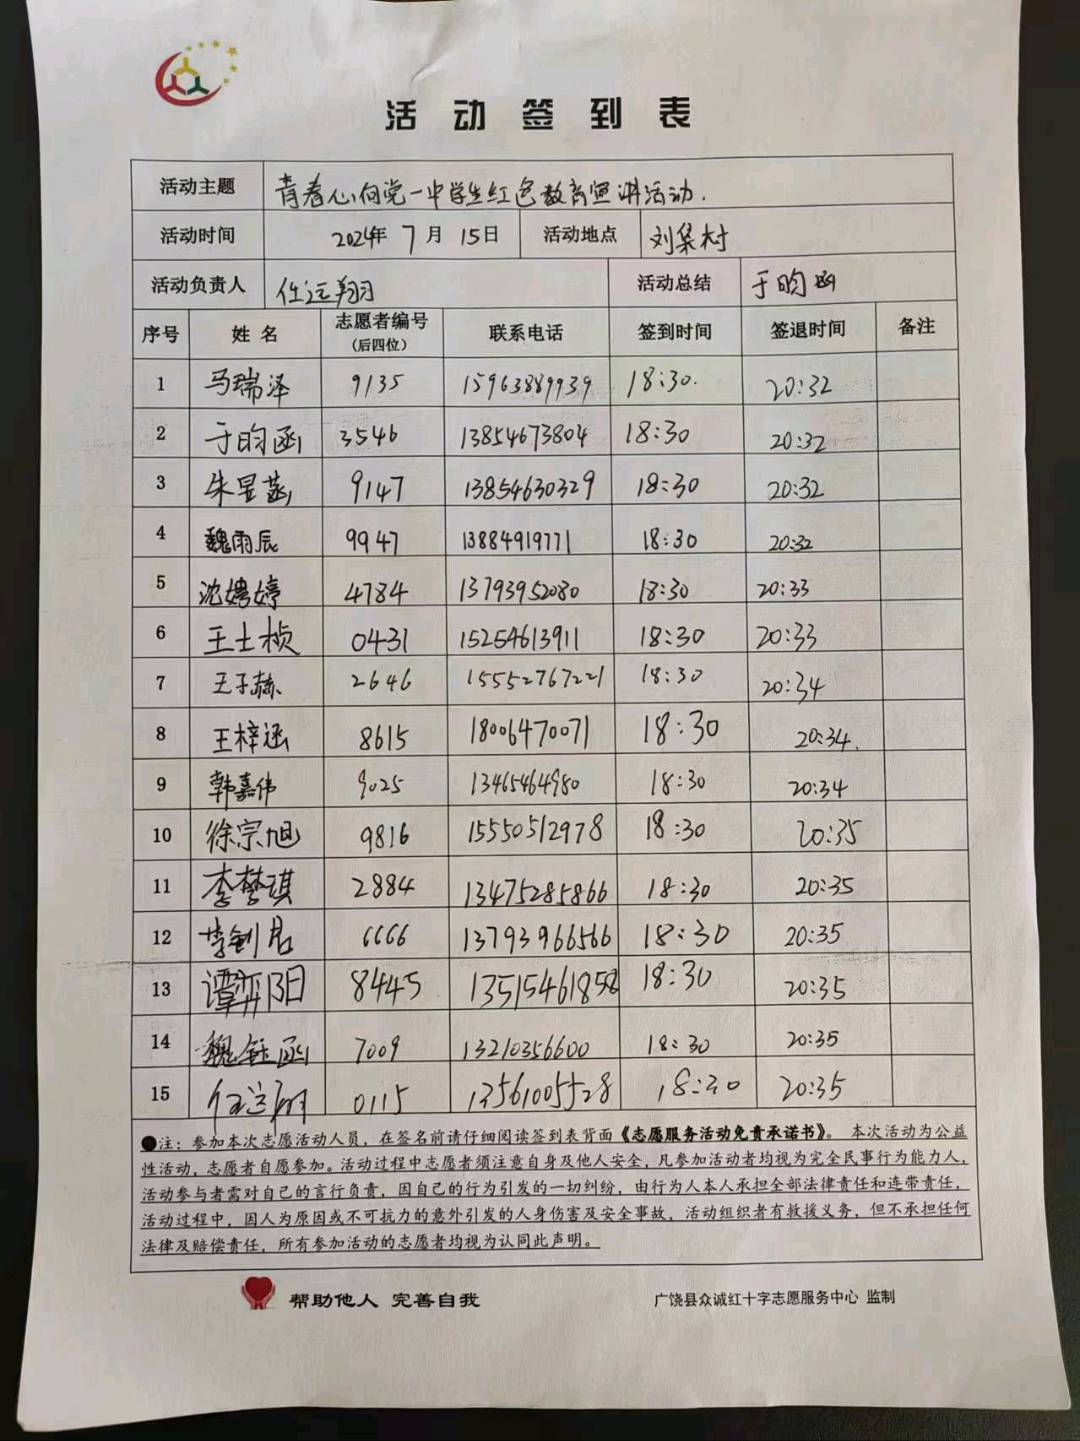 活动签到表
活动主题 青春心向党一中学生红色教育宣讲活动.
活动时间 2024年 7月 15日 活动地点 刘集村
活动负责人 任运翔 活动总结 于昀函
序号 姓名 志愿者编号（后四位） 联系电话 签到时间 签退时间 备注
1 马瑞泽 9135 15963889939 18:30. 20:32
2 于昀函 3546 13854673804 18:30 20:32
3 朱昱菡 9147 13854630329 18:30 20:32
4 魏雨辰 9947 13884919771 18:30 20:32
5 沈娉婷 4784 13793952080 18:30 20:33
6 王士桢 0431 15254613911 18:30 20:33
7 王子赫 2646 15552767221 18:30 20:34
8 王梓涵 8615 18006470071 18:30 20:34.
9 韩嘉伟 9025 13465464980 18:30 20:34
10 徐宗旭 9816 15550512978 18:30 20:35
11 李梦琪 2884 13475285866 18:30 20:35
12 李钊君 6666 13793966566 18:30 20:35
13 谭弈阳 8445 13515461858 18:30 20:35
14 魏钰函 7009 13210356600 18:30 20:35
15 任运翔 0115 13561005528 18:30 20:35
●注：参加本次志愿活动人员，在签名前请仔细阅读签到表背面《志愿服务活动免责承诺书》。本次活动为公益
性活动，志愿者自愿参加。活动过程中志愿者须注意自身及他人安全，凡参加活动者均视为完全民事行为能力人，
活动参与者需对自己的言行负责，因自己的行为引发的一切纠纷，由行为人本人承担全部法律责任和连带责任，
活动过程中，因人为原因或不可抗力的意外引发的人身伤害及安全事故，活动组织者有救援义务，但不承担任何
法律及赔偿责任，所有参加活动的志愿者均视为认同此声明。
帮助他人 完善自我 广饶县众诚红十字志愿服务中心 监制